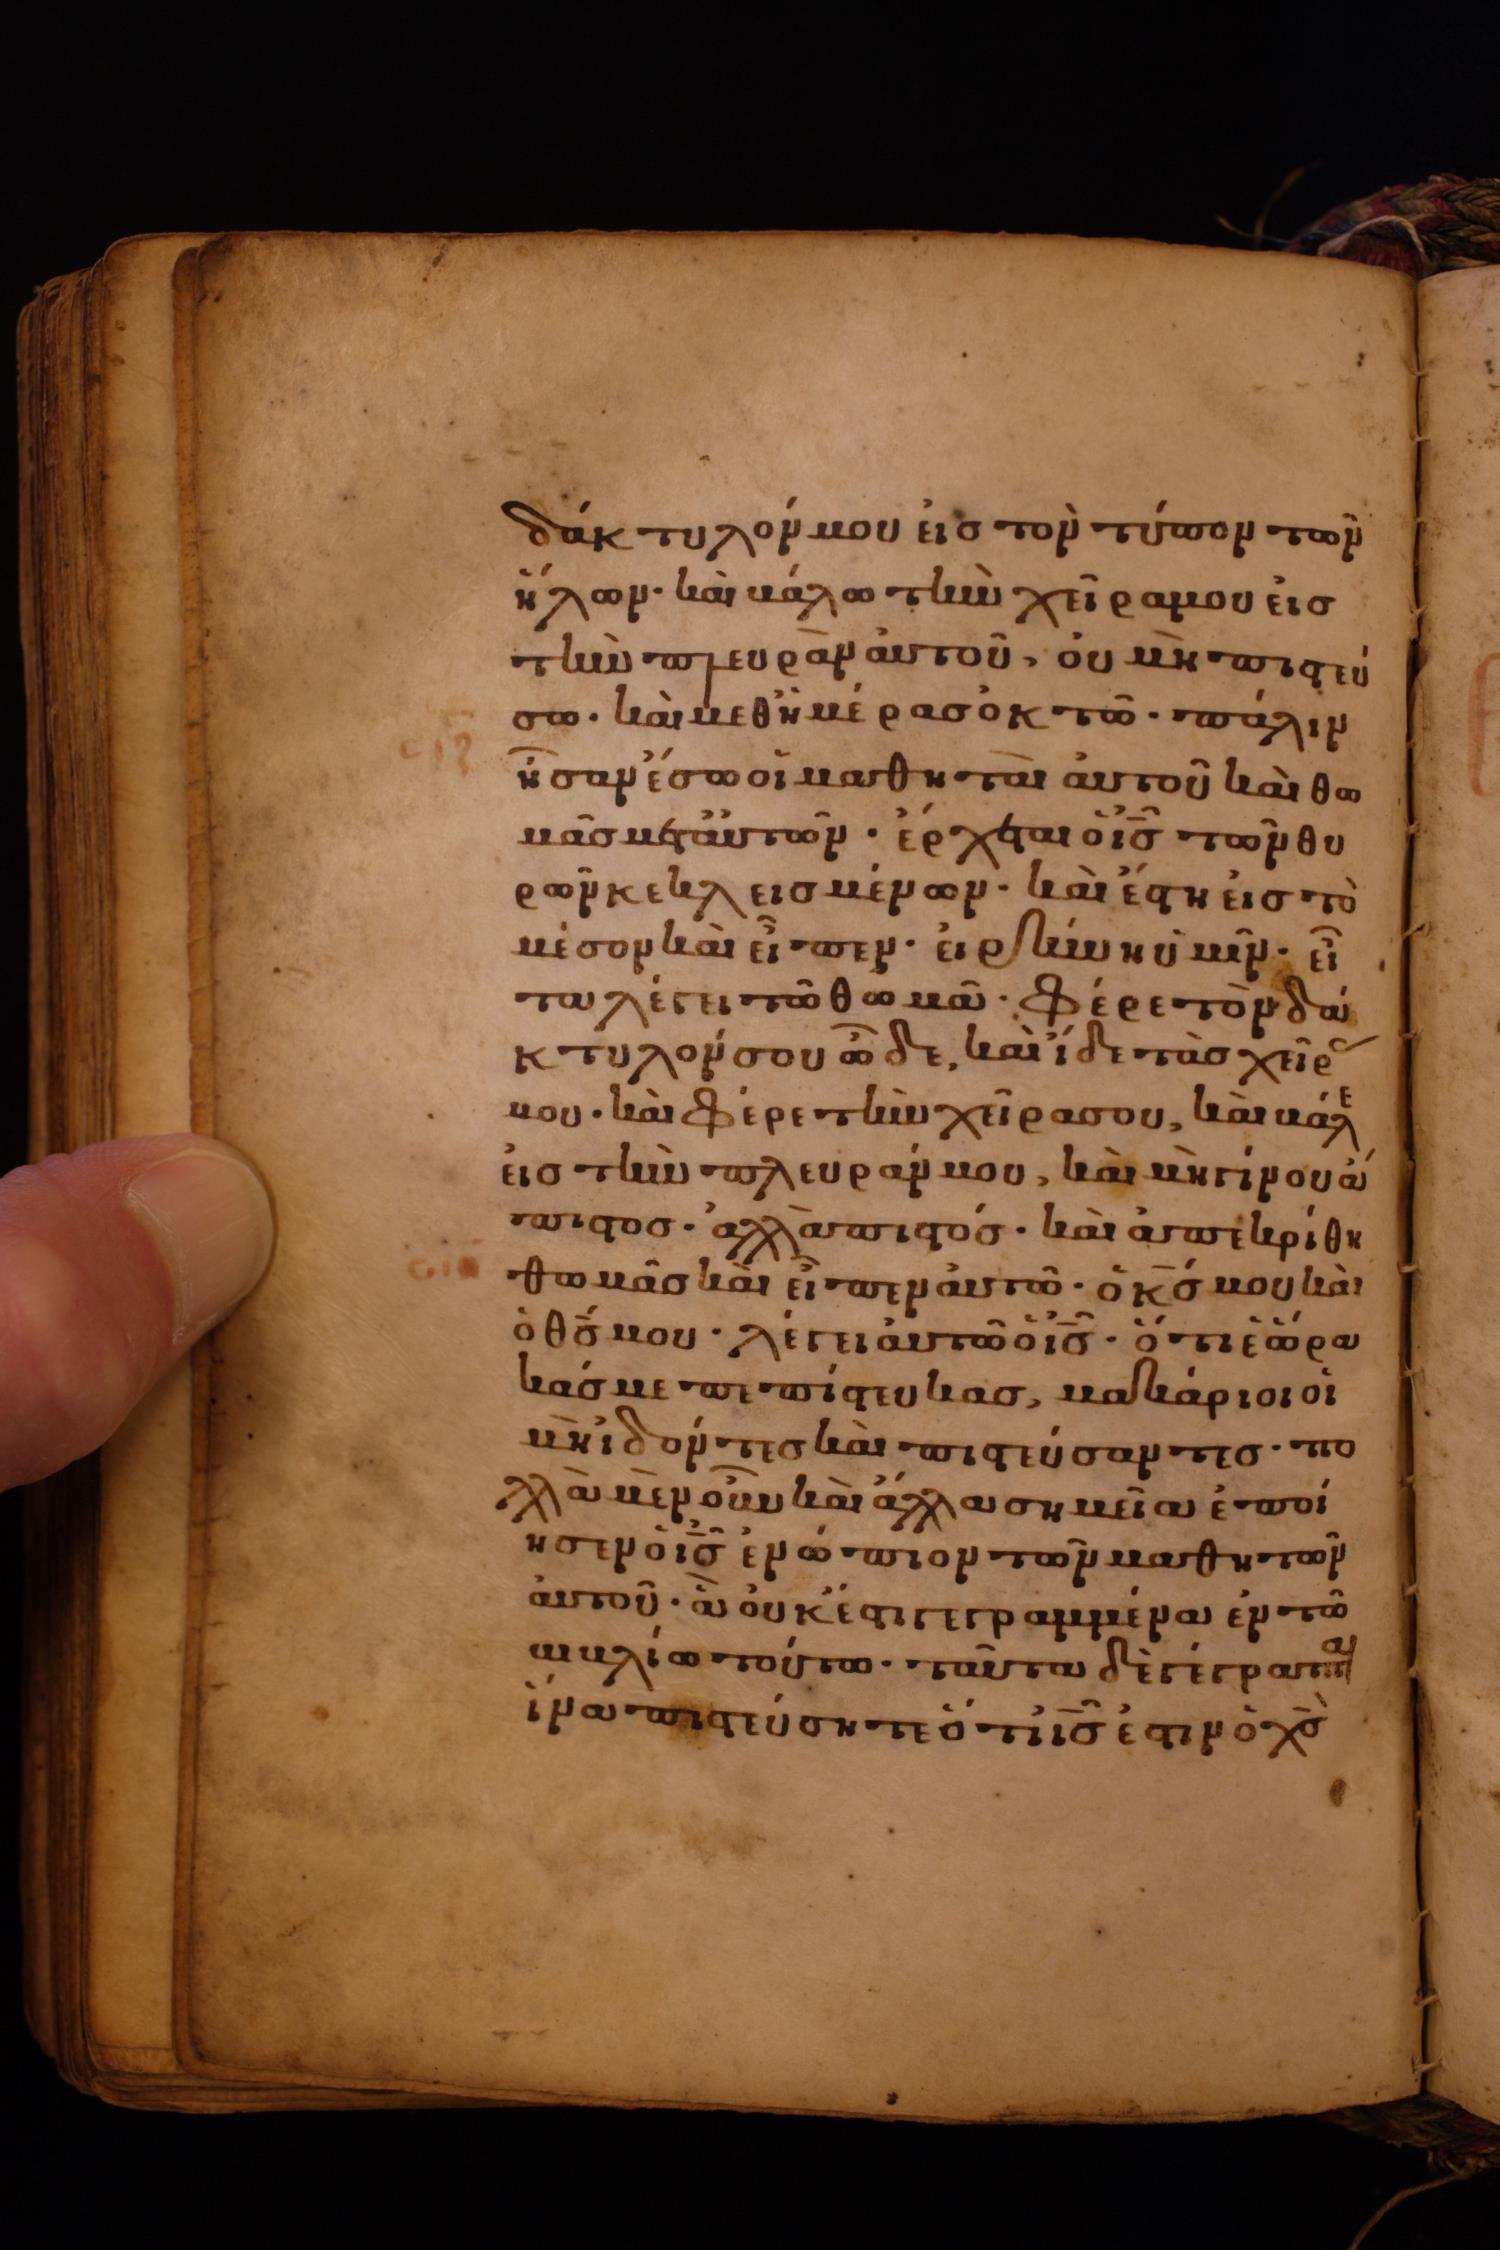 δάκτυλόν μου εἰσ τὸν τύπον τῶν
ἥλων· καὶ βάλω τὴν χεῖρα μου εἰσ
τὴν πλευρὰν ἀυτοῦ, ὀυ μὴ πιστεύ
σω· καὶ μεθ ἡμέρασ ὀκτῶ· πάλιν
ἦσαν ἔσω οἱ μαθηταὶ ἀυτοῦ καὶ θω
μᾶσ μετ ἀυτῶν· ἔρχεται ὁ ἰ̅σ̅ τῶν θυ
ρῶν κεκλεισμένων· καὶ ἔστη εἰσ τὸ
μέσον καὶ εἶπεν· εἰρήνη ὑμῖν· εἶ
τα λέγει τῶ θωμᾶ· φέρε τὸν δά
κτυλόν σου ὧδε, καὶ ἴδε τὰσ χεῖρασ
μου· καὶ φέρε τὴν χεῖρα σου, καὶ βάλε
εἰσ τὴν πλευράν μου, καὶ μὴ γίνου ἄ
πιστοσ· ἀλλὰ πιστόσ· καὶ ἀπεκρίθη
θωμᾶσ καὶ εἶπεν ἀυτῶ· ὁ κ̅σ̅ μου καὶ
ὁ θ̅σ̅ μου· λέγει ἀυτῶ ὁ ἰ̅σ̅· ὅτι ἑώρα
κάσ με πεπίστευκασ, μακάριοι οἱ
μὴ ἰδόντεσ καὶ πιστεύσαντεσ· πο
λλὰ μὲν οὖν καὶ ἄλλα σημεῖα ἐποί
ησεν ὁ ἰ̅σ̅ ἐνώπιον τῶν μαθητῶν
ἀυτοῦ· ἃ ὀυκ ἔστι γεγραμμένα ἐν τῶ
βιβλίω τούτω· ταῦτα δὲ γέγραπται
ἵνα πιστεύσητε ὅτι ἰ̅σ̅ ἐστιν ὁ χ̅σ̅